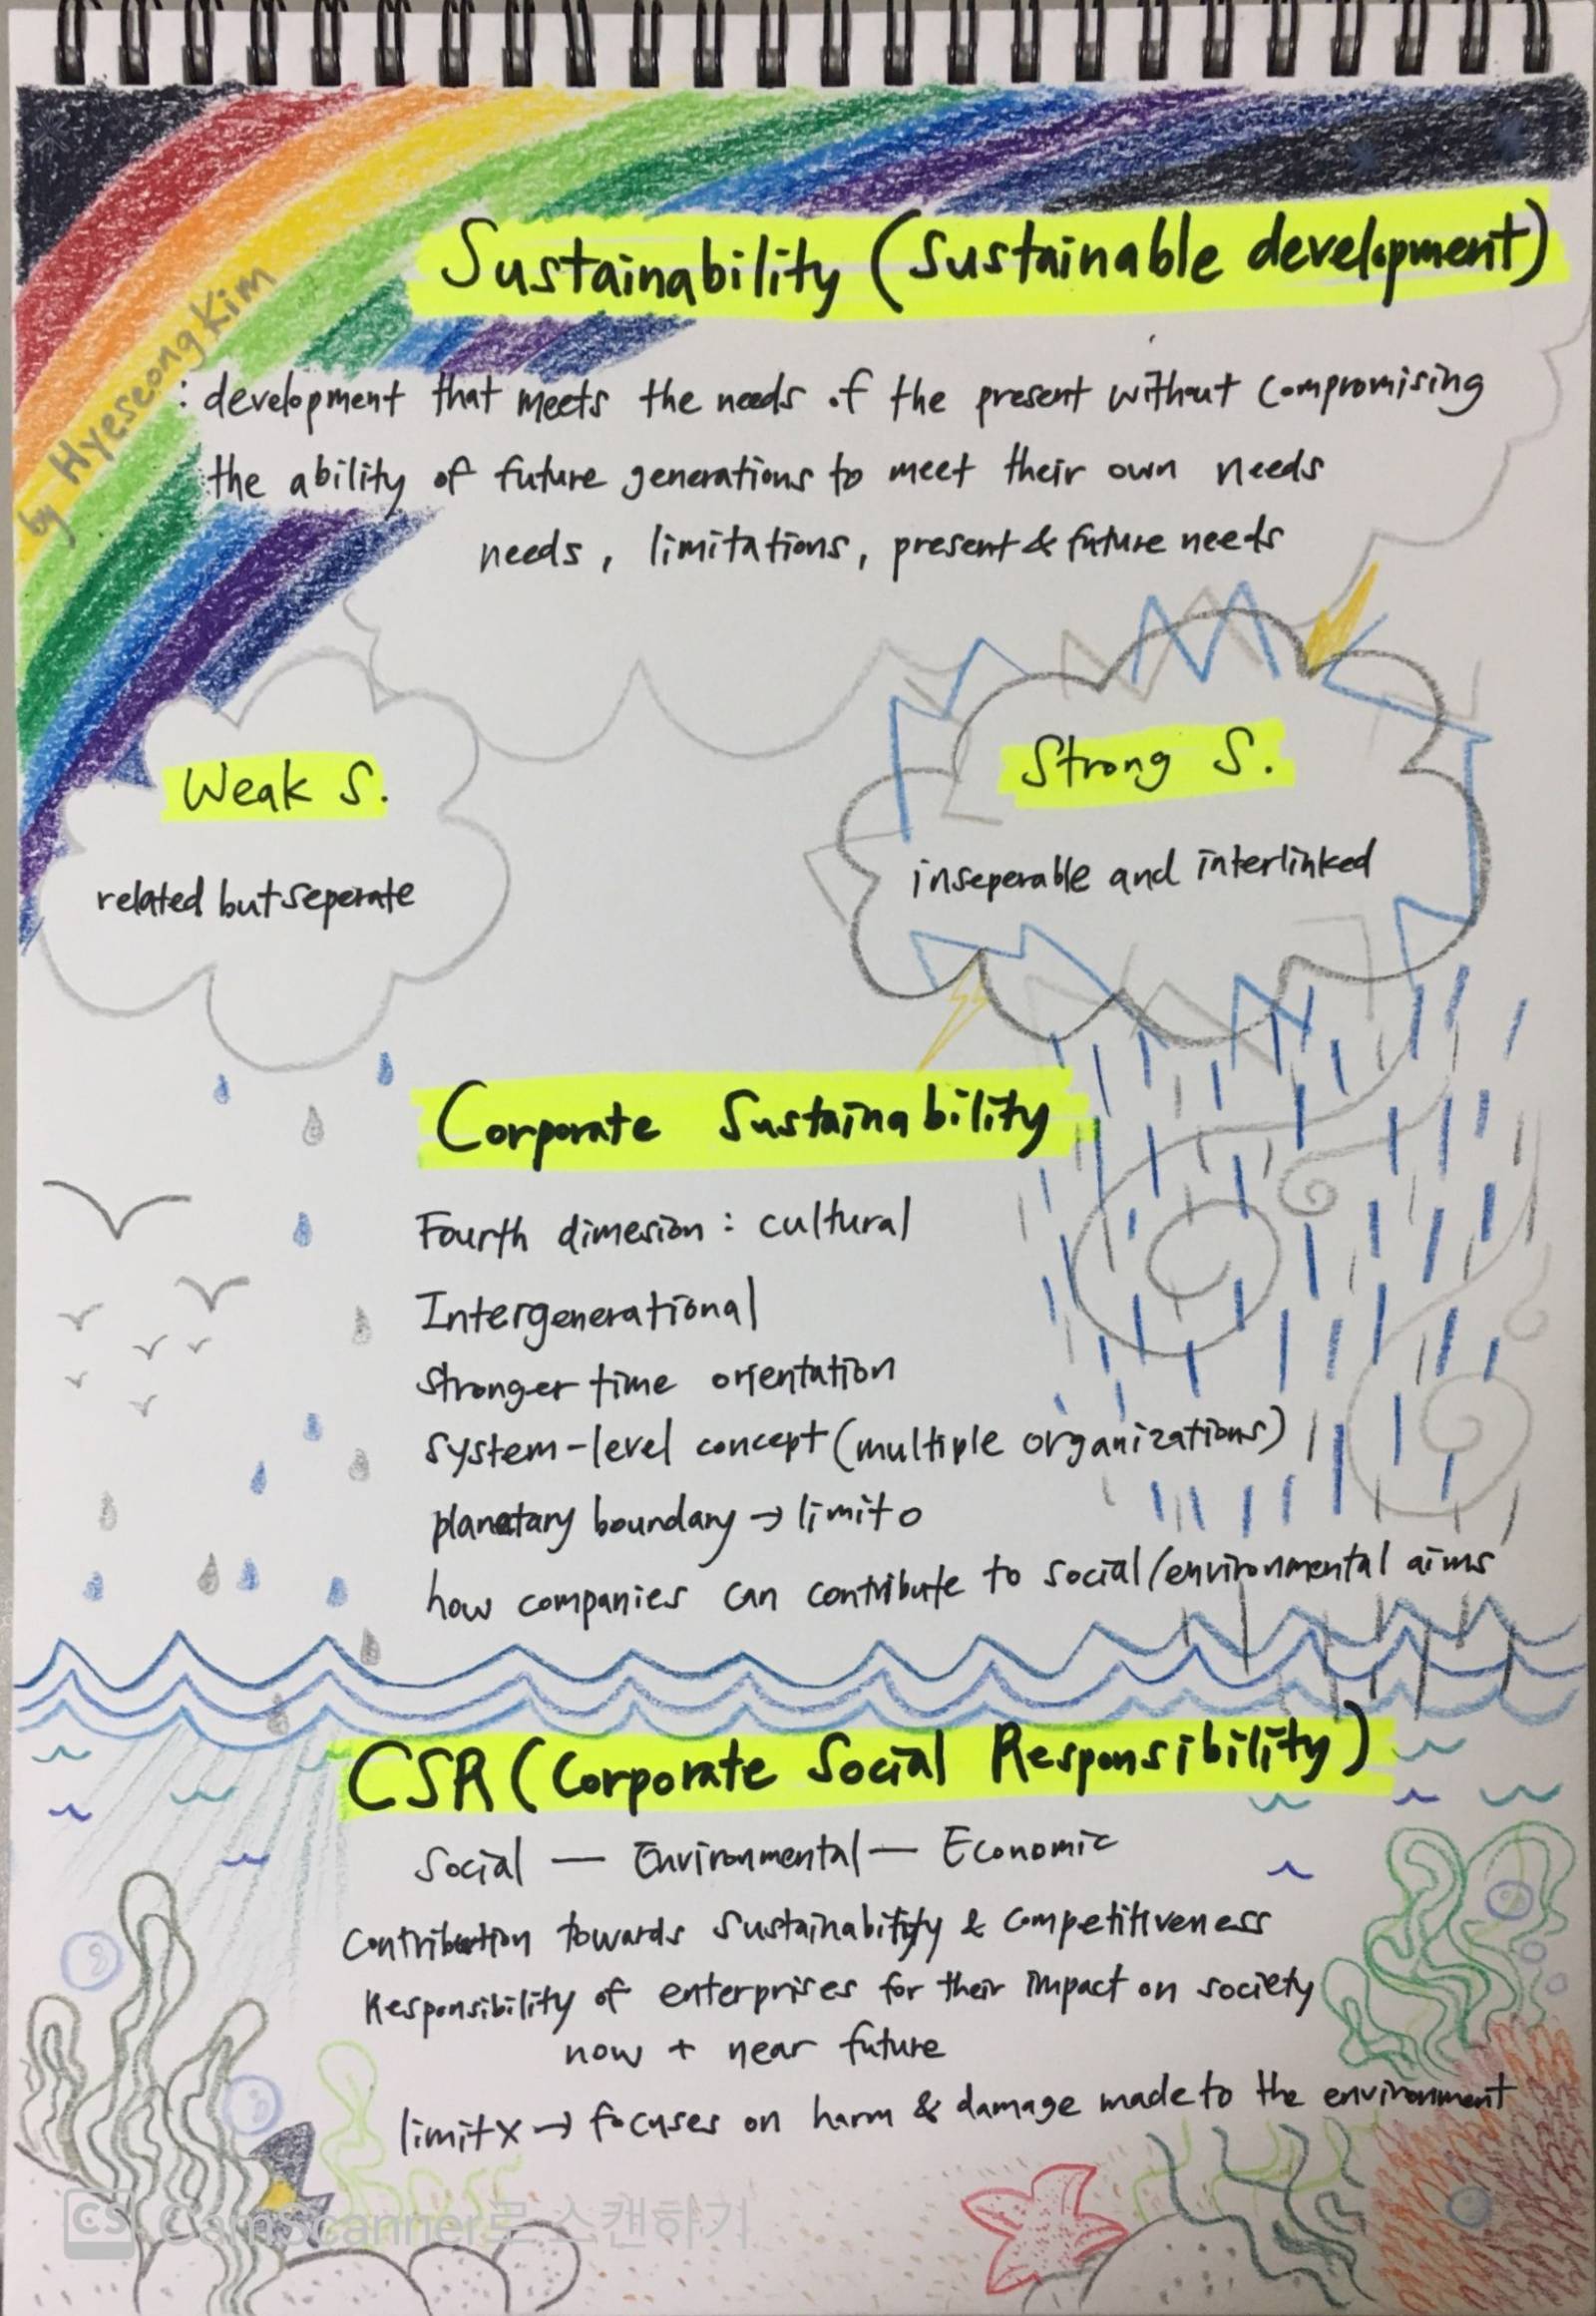 Sustainability (Sustainable development)
by Hyeseong Kim
: development that meets the needs of the present without compromising
the ability of future generations to meet their own needs
needs, limitations, present & future needs
Weak S.
related but seperate
Strong S.
inseperable and interlinked
Corporate Sustainability
Fourth dimesion : cultural
Intergenerational
Stronger time orientation
System-level concept (multiple organizations)
planetary boundary → limit o
how companies can contribute to social/environmental aims
CSR (Corporate Social Responsibility)
Social — Environmental — Economic
Contribution towards Sustainability & Competitiveness
Responsibility of enterprises for their impact on society
now + near future
limit x → focuses on harm & damage made to the environment
CS CamScanner로 스캔하기